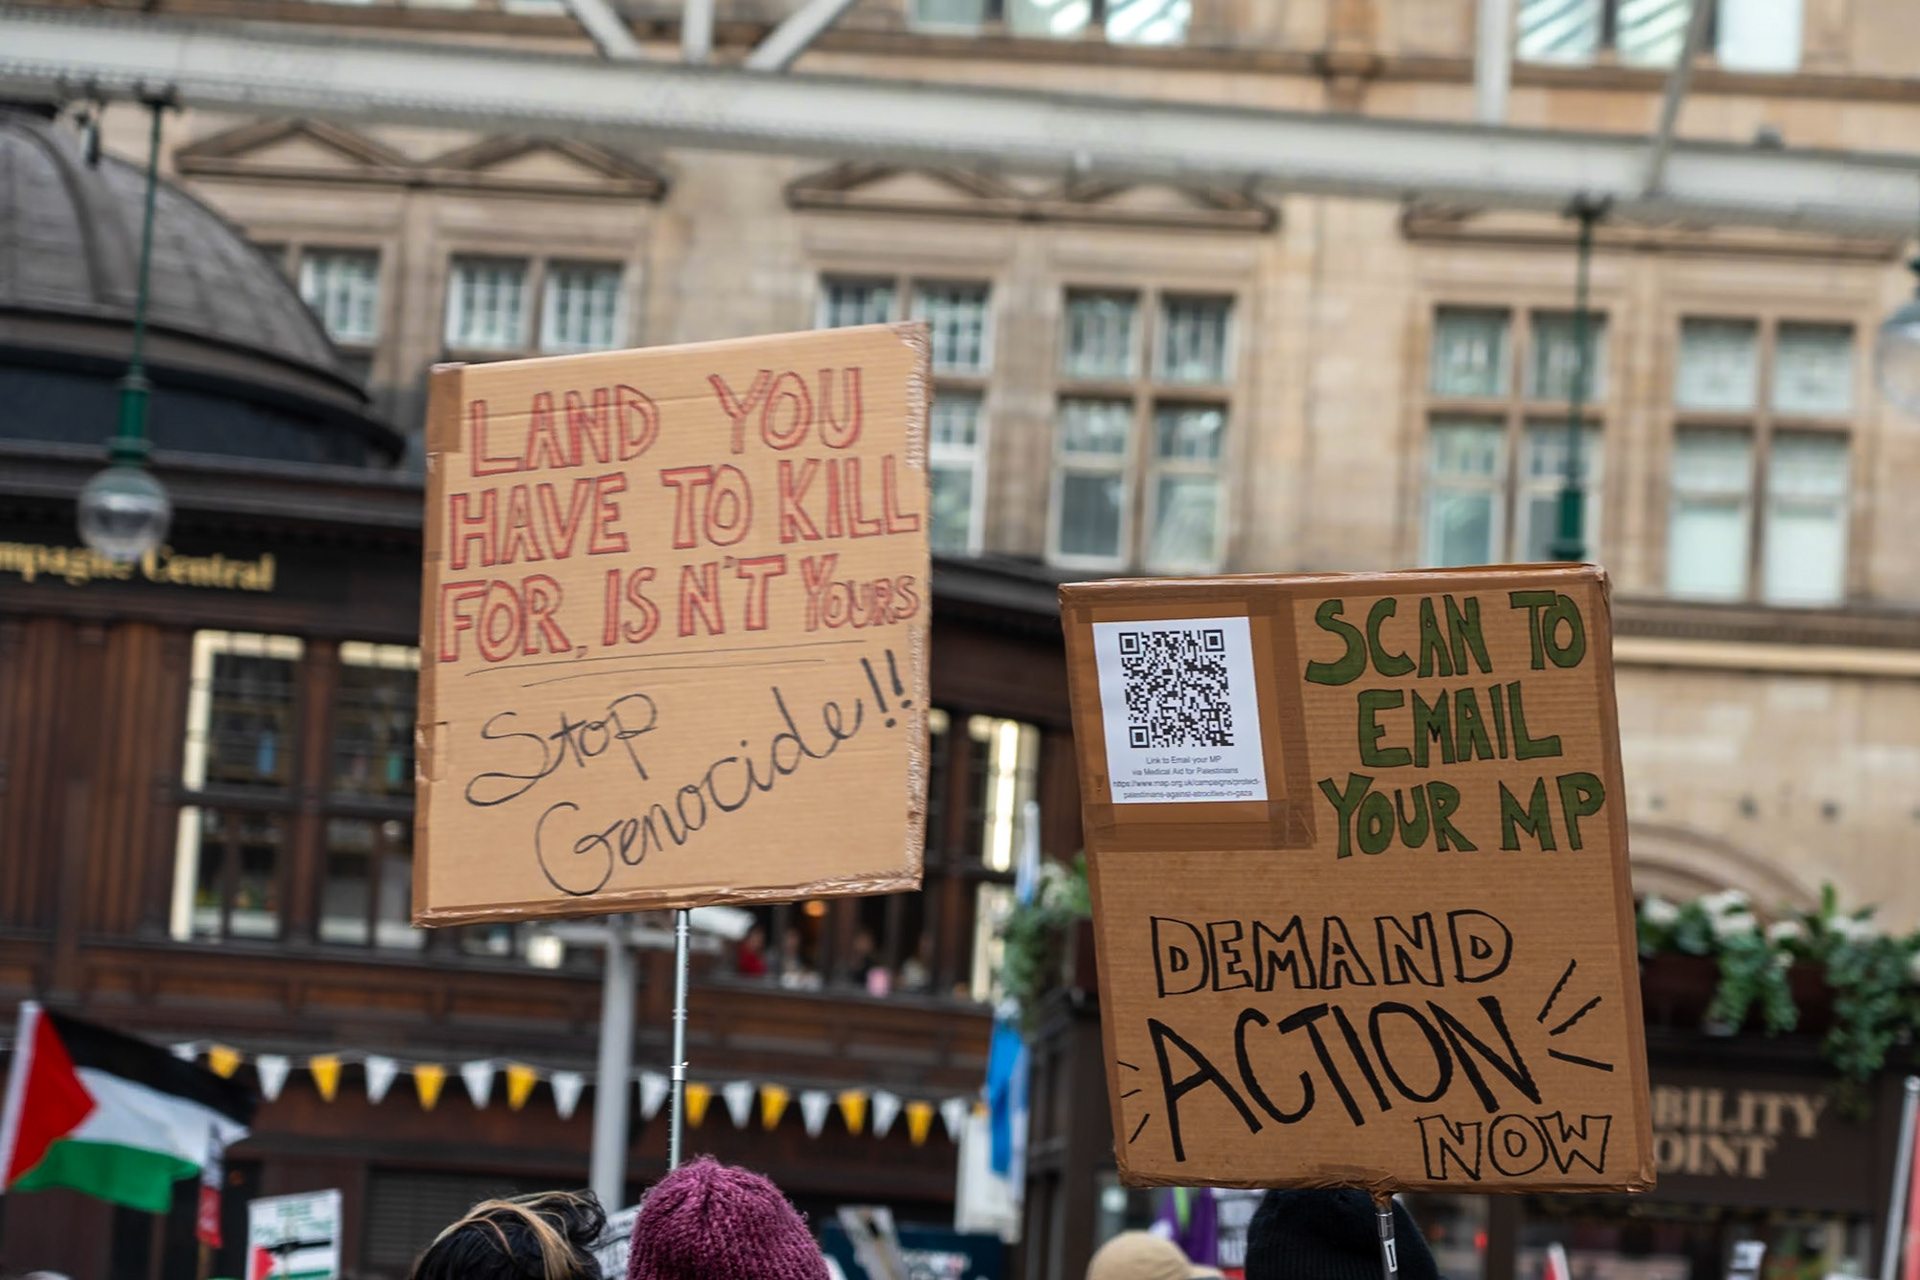 LAND YOU
HAVE TO KILL
FOR, ISN'T YOURS
Stop
Genocide!!
SCAN TO
EMAIL
YOUR MP
Link to Email your MP
via Medical Aid for Palestinians
https://www.map.org.uk/campaigns/protect-
palestinians-against-atrocities-in-gaza
DEMAND
ACTION
NOW
Central
BILITY
OINT
FREE